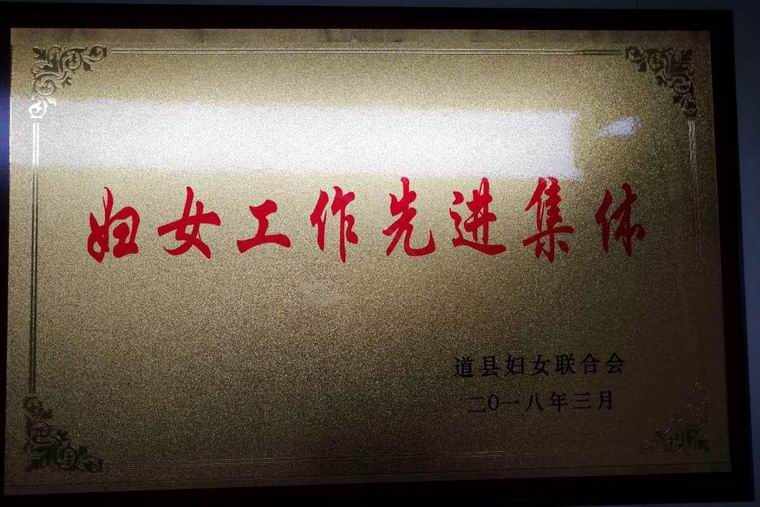 妇女工作先进集体
道县妇女联合会
二0一八年三月